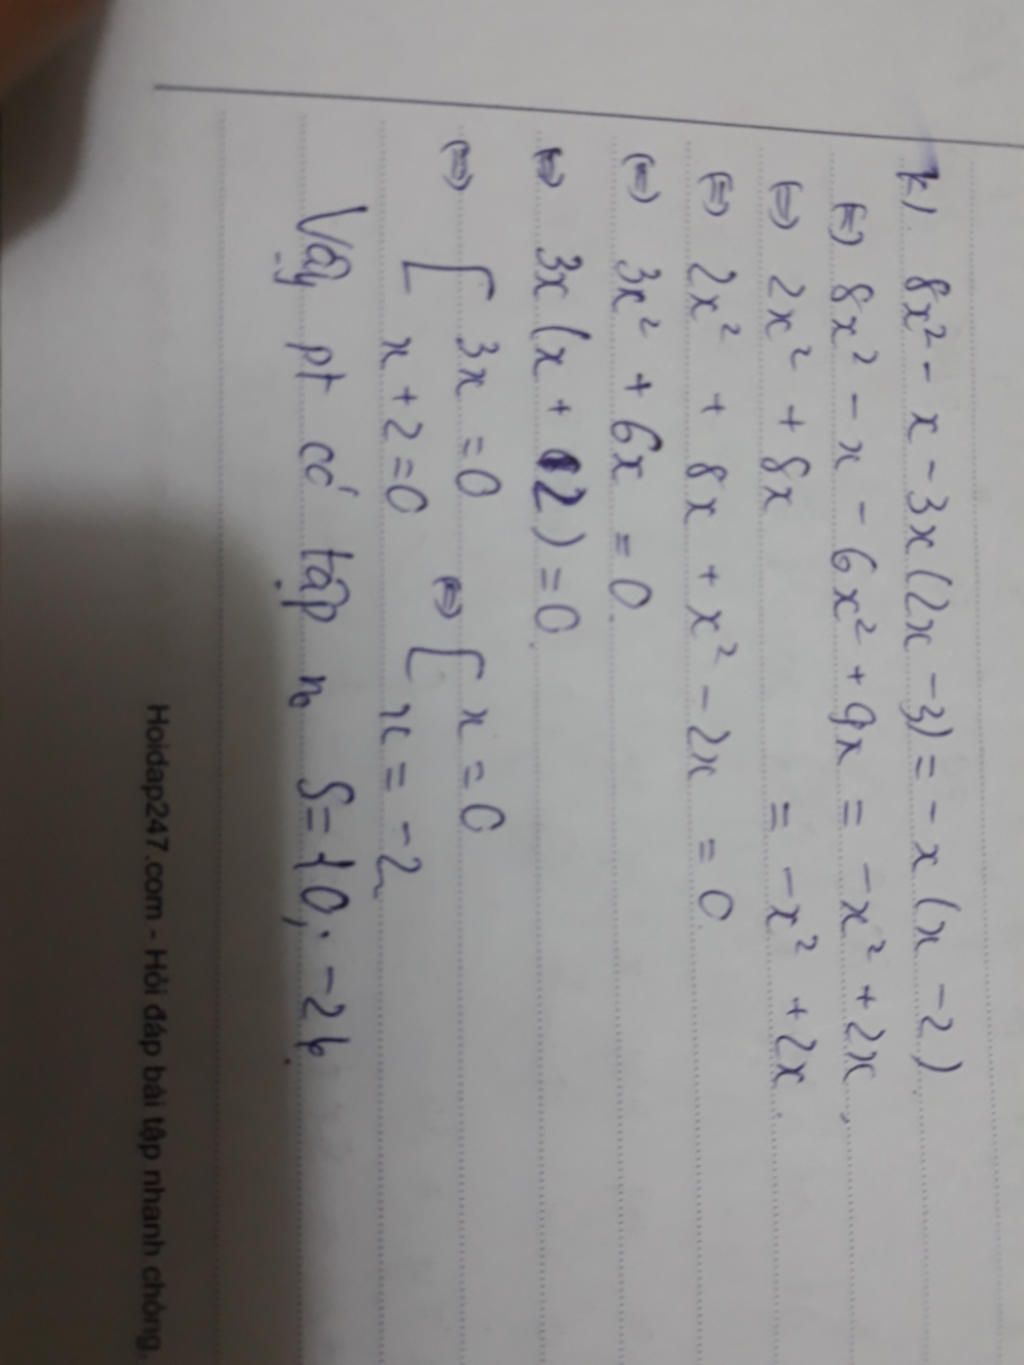 k) 8x² - x - 3x(2x - 3) = -x(x - 2)
⇔ 8x² - x - 6x² + 9x = -x² + 2x.
⇔ 2x² + 8x = -x² + 2x.
⇔ 2x² + 8x + x² - 2x = 0.
⇔ 3x² + 6x = 0.
⇔ 3x(x + 2) = 0.
⇔ [ 3x = 0 ⇔ [ x = 0
x + 2 = 0 x = -2
Vậy pt có tập n₀ S = {0; -2}.
Hoidap247.com - Hỏi đáp bài tập nhanh chóng,